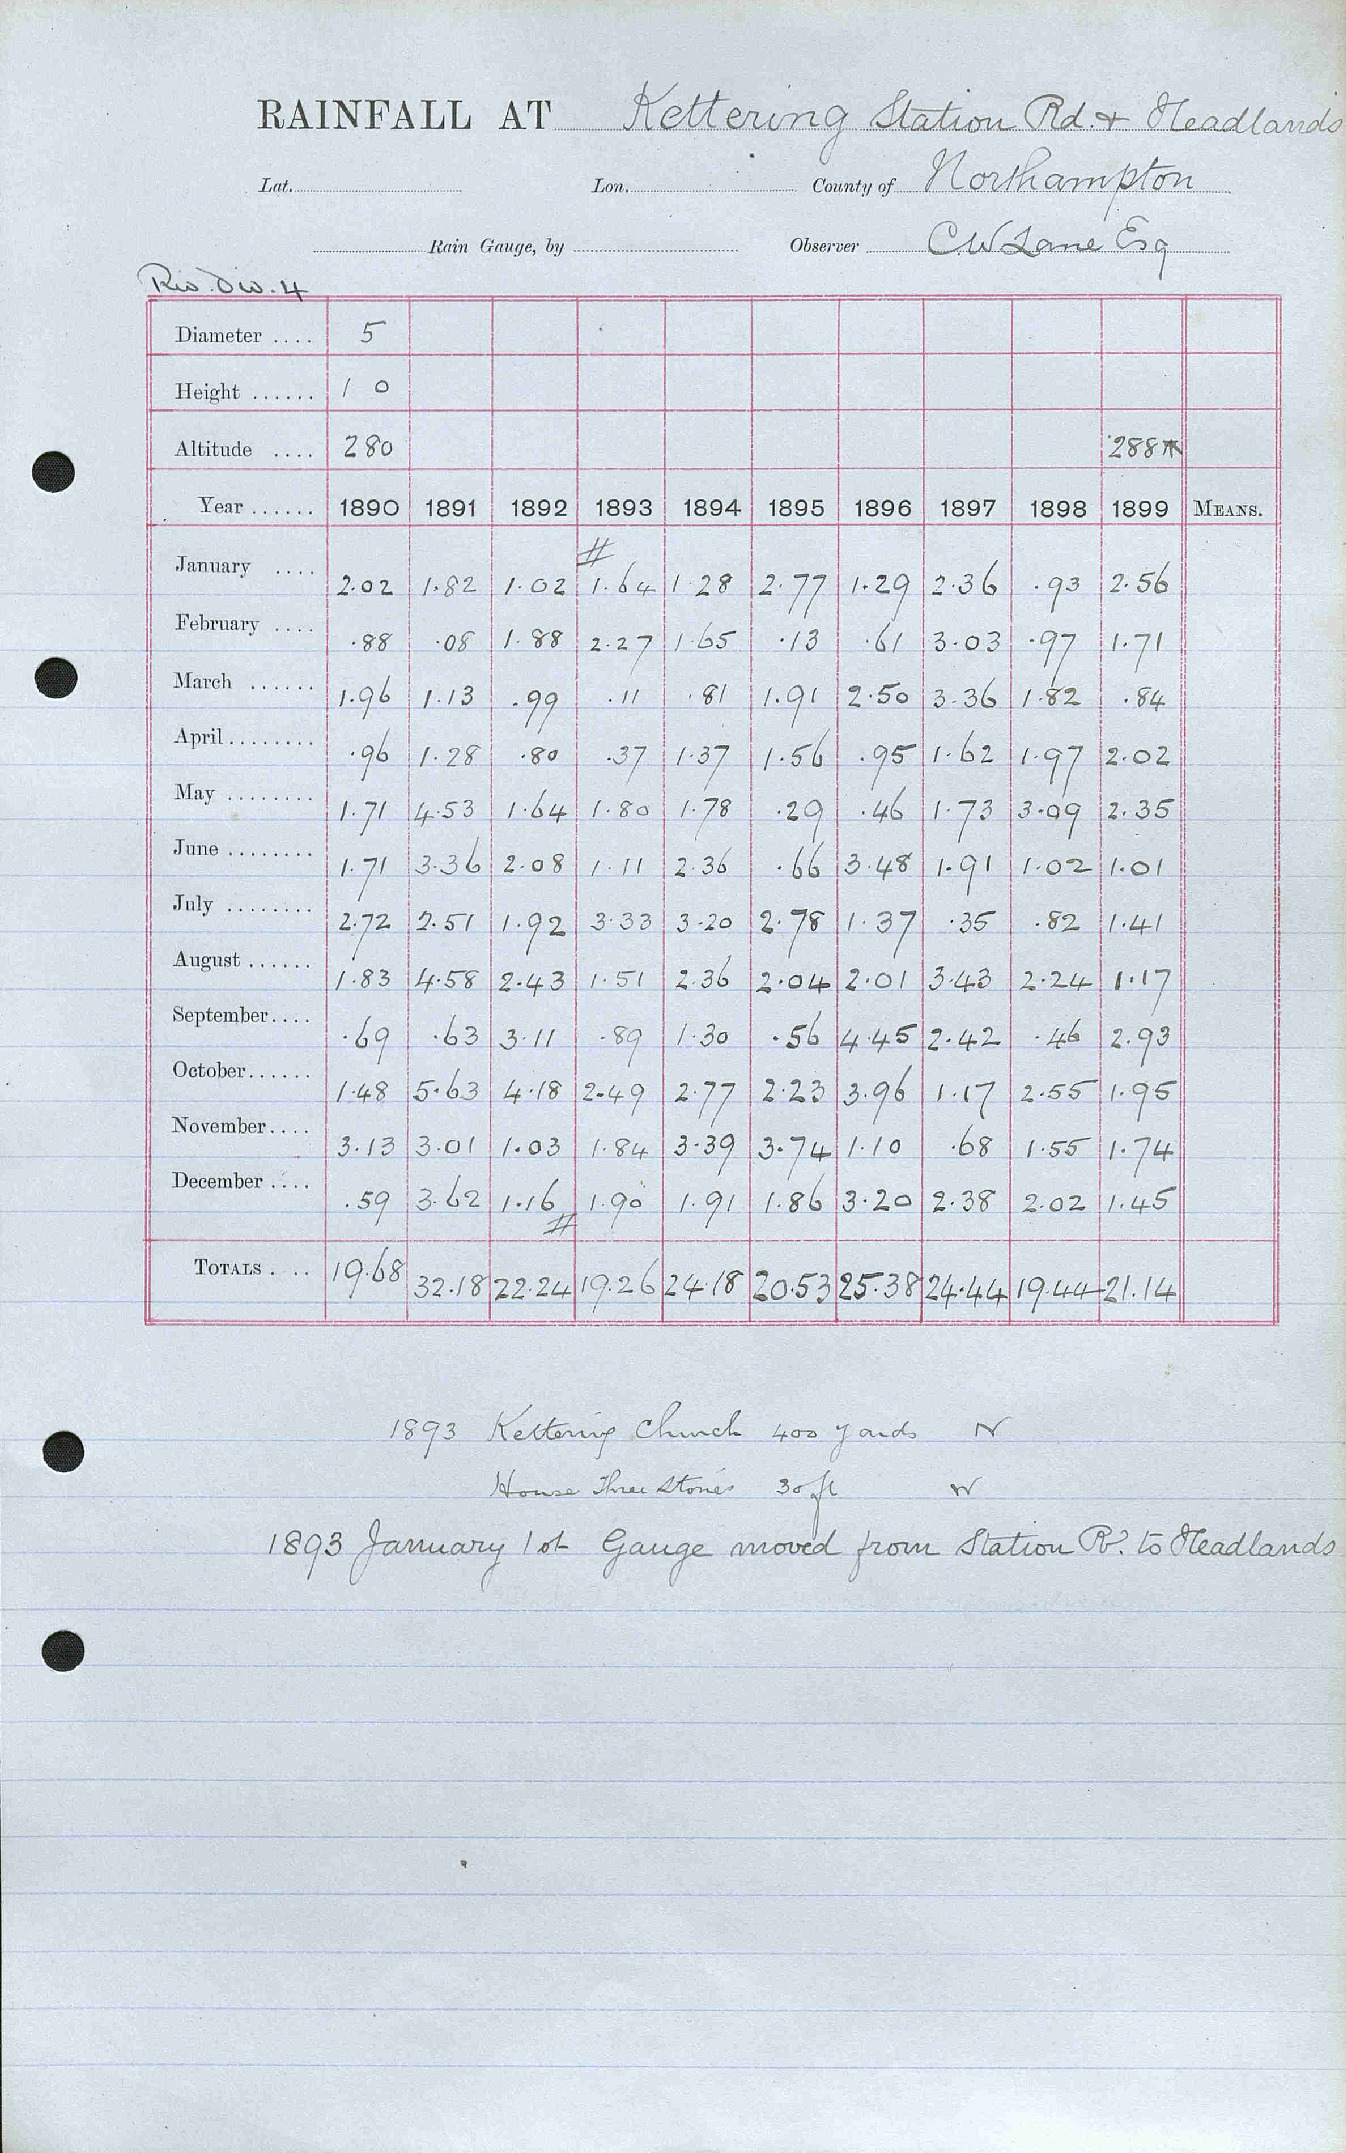 RAINFALL AT Kettering Station Rd. & Headlands
Lat. Lon. County of Northampton
Rain Gauge, by Observer C.W Lane Esq
Riv. Div. 4
Diameter .... 5
Height ...... 1 0
Altitude .... 280 288
Year ...... 1890 1891 1892 1893 1894 1895 1896 1897 1898 1899 MEANS.
#
January .... 2.02 1.82 1.02 1.64 1.28 2.77 1.29 2.36 .93 2.56
February .... .88 .08 1.88 2.27 1.65 .13 .61 3.03 .97 1.71
March ...... 1.96 1.13 .99 .11 .81 1.91 2.50 3.36 1.82 .84
April........ .96 1.28 .80 .37 1.37 1.56 .95 1.62 1.97 2.02
May ........ 1.71 4.53 1.64 1.80 1.78 .29 .46 1.73 3.09 2.35
June ........ 1.71 3.36 2.08 1.11 2.36 .66 3.48 1.91 1.02 1.01
July ........ 2.72 2.51 1.92 3.33 3.20 2.78 1.37 .35 .82 1.41
August ...... 1.83 4.58 2.43 1.51 2.36 2.04 2.01 3.43 2.24 1.17
September.... .69 .63 3.11 .89 1.30 .56 4.45 2.42 .46 2.93
October...... 1.48 5.63 4.18 2.49 2.77 2.23 3.96 1.17 2.55 1.95
November.... 3.13 3.01 1.03 1.84 3.39 3.74 1.10 .68 1.55 1.74
December .... .59 3.62 1.16 1.90 1.91 1.86 3.20 2.38 2.02 1.45
#
TOTALS .... 19.68 32.18 22.24 19.26 24.18 20.53 25.38 24.44 19.44 21.14
1893 Kettering Church 400 yards N
House Three Stories 30 ft W
1893 January 1st Gauge moved from Station Rd. to Headlands